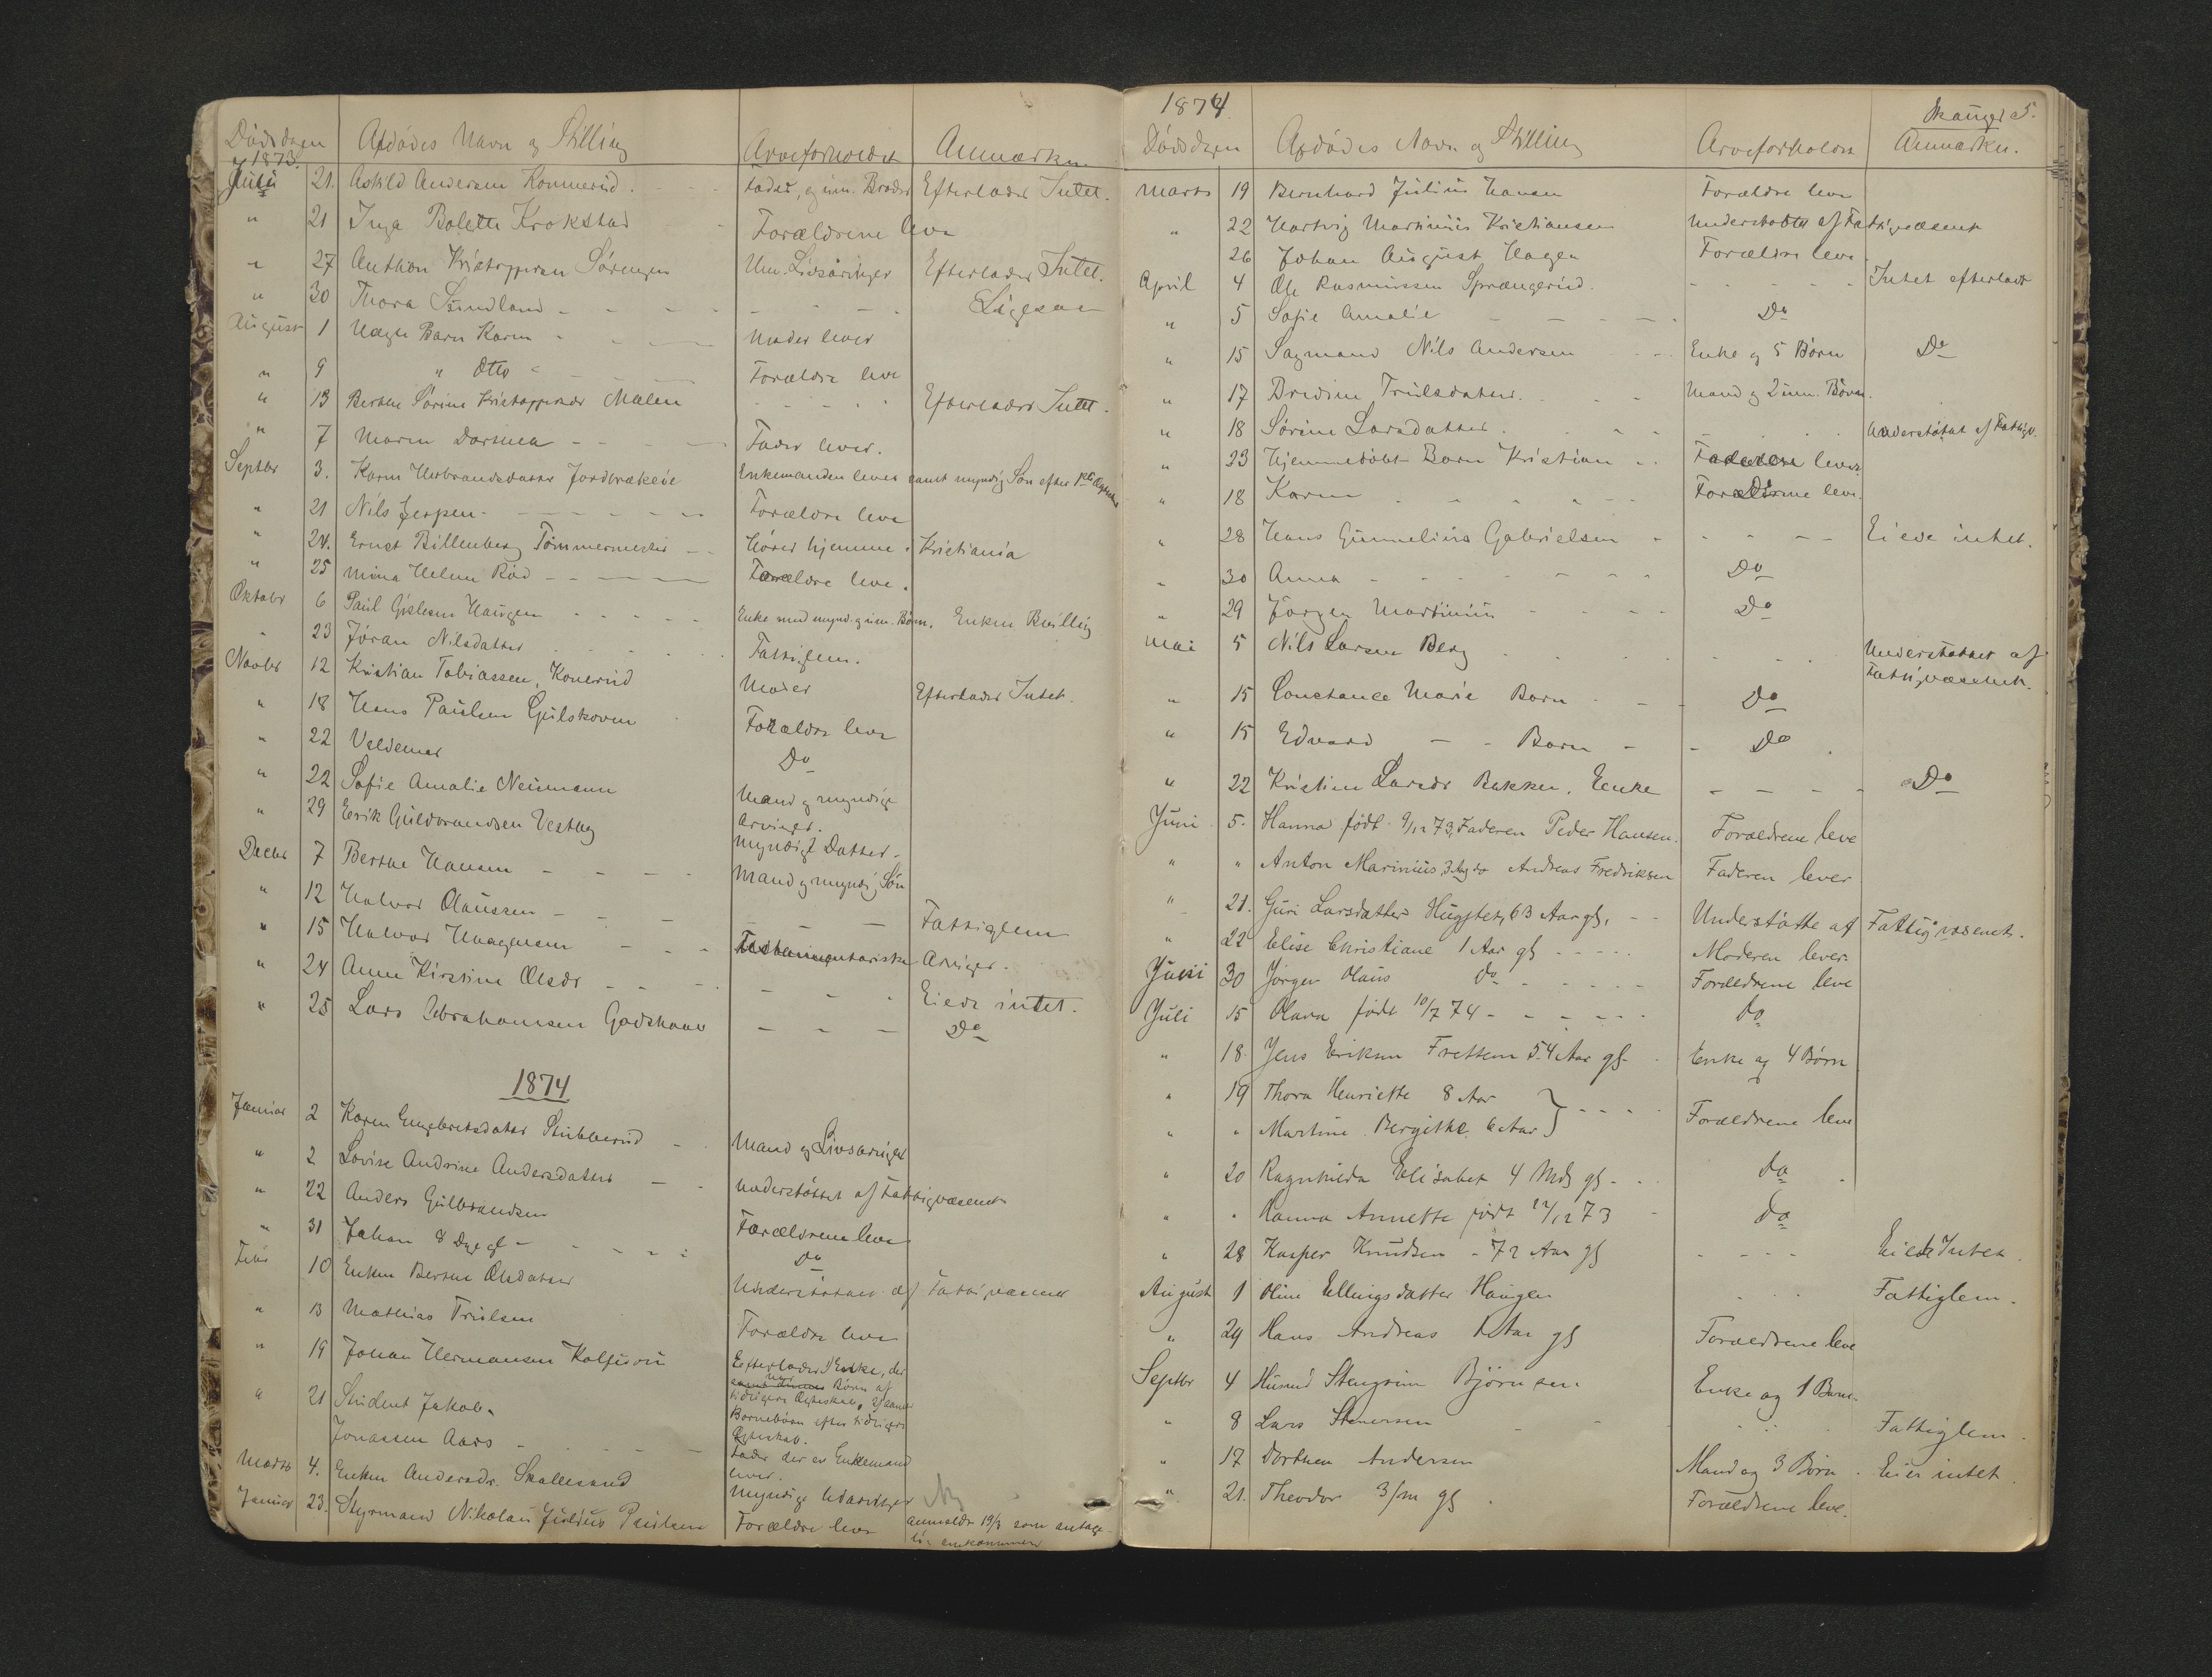 Dödsdagen Afdödes Navn og Stilling Arveforholdet Anmærkn
1873.
Juli 21. Askild Andersen Konnerud. Fader, og um. Broder Efterlader Intet.
" 21 Inga Bolette Krokstad Forældrene leve
" 27 Anthon Kristoffersen Sörengen Um. Livsarvinger Efterlader Intet.
" 30 Thora Sundland - - - - Ligesaa
August 1 Uægte Barn Karen - - Moder lever
" 9 " Otto - Forældre leve
" 13 Berthe Sörine Kristoffersdr Mælen - - - Efterlader Intet.
" 7 Maren Dorthea - - - Fader lever.
Septbr 3. Karen Herbrandsdatter Jordbrækeie Enkemanden lever samt myndig Sön efter 1ste Ægteskab
" 21 Nils Jespen - - - - Forældre leve
" 24. Ernst Billenberg Tömmermester - - Hörer hjemme i Kristiania
" 25 Mina Helene Röd - - - Forældre leve.
Oktober 6 Paul Gislesen Haugen - - - Enke med mynd. og um. Börn. Enken Bevilling
" 23 Jöran Nilsdatter Fattiglem.
Novbr 12 Kristian Tobiassen, Konerud Moder Efterlader Intet.
" 18 Hans Paulsen Gulskoven Forældre leve
" 22 Valdemar Do
" 22 Sofie Amalie Neumann Mand og myndige
Arvinger.
" 29 Erik Guldbrandsen Vestby Myndigt Datter.
Decbr 7 Berthe Hansen - - - - Mand og myndig Sön
" 12 Halvor Olaussen - - - - - Fattiglem
" 15 Halvor Haagensen - - - Testamentariske Arvinger.
" 24 Anne Kirstine Olsdr - - - - - Eiede intet.
" 25 Lars Abrahamsen Godskaar - - - Do
1874
Januar 2 Karen Engebretsdatter Stubberud - Mand og Livsarvinger
" 2 Lovise Andrine Andersdatter - - Understöttet af Fattigvæsenet
" 22 Anders Gulbrandsen Forældrene leve
" 31 Johan 8 Dage gl - - - - Do
Febr 10 Enken Berthe Olsdatter Understöttet af Fattigvæsenet
" 13 Mathias Trulsen Forældre leve
" 19 Johan Hermansen Kalfjorn Efterlader Enke, der
Börn af
tidligere Ægteskab, samt
Börnebörn efter tidligere
Ægteskab.
" 21 Student Jakob
Jonassen Aars - - - Fader der er Enkemand
lever.
Marts 4. Enken Andersdr. Skallesund Myndige Udarvinger
Januar 23. Styrmand Nikolai Julius Paulsen Forældre leve Anmeldt 19/3 som antage-
lig omkommen
1874
Skauger 5.
Dödsdagen Afdödes Navn og Stilling Arveforholdet Anmærkn.
Marts 19 Bernhard Julius Hansen Forældre leve
" 22 Hartvig Martinius Kristiansen Understöttet af Fattigvæsenet
26 Johan August Hagen Forældre leve
April 4 Ole Rasmussen Sprængerud. - - - - Intet efterladt
" 5 Sofie Amalie - - - - Do
" 15 Sagmand Nils Andersen - - Enke og 5 Börn Do
" 17 Bredine Trulsdatter. - - - Mand og 2 um. Börn.
" 18 Sörine Larsdatter. - - - - Understöttet af Fattigv.
" 23 Hjemmedöbt Barn Kristian - - Faderen lever
" 18 Karen - - - - - Forældrene leve.
" 28 Hans Gunnelius Gabrielsen - - - - - Eiede intet.
" 30 Anna - - - - - - Do
" 29 Jörgen Martinius - - - - Do
Mai 5 Nils Larsen Berg - - - - Understöttet af
Fattigvæsenet.
" 15 Constance Marie Barn - - - Do
" 15 Edvard - - Barn - - Do
" 22 Kristine Larsdr Bakken. Enke - - - - Do
Juni 5. Hanna födt 9/12 73, Faderen Peder Hansen. Forældrene leve
" " Anton Marinius, 3 Aar do Andreas Fredriksen Faderen lever
" 21. Guri Larsdatter 63 Aar gl. - - Understötte af Fattigvæsenet.
" 22 Elise Christiane 1 Aar gl - - - - Moderen lever.
Juni 30 Jörgen Olaus do - - - - - Forældrene leve
Juli 15 Olava födt 10/7 74 - - - - - - do
" 18. Jens Eriksen Frettem 54 Aar gl - Enke og 4 Börn
" 19 Thora Henriette 8 Aar
" " Martine Bergithe. 6 Aar - - - - Forældrene leve
" 20 Ragnhilda Elisabet 4 Mdr gl - - do
" " Hanna Annette födt 22/12 73 - do
" 28 Kasper Knudsen - 72 Aar gl - - - - Eiede Intet
August 1 Oline Ellingsdatter Haugen Fattiglem.
" 29 Hans Andreas 1 Aar gl Forældrene leve
Septbr 4 Husmd Stengrim Björnsen Enke og 1 Barn
" 8 Lars Stenersen Fattiglem.
" 17 Dorthea Andersen Mand og 3 Börn. Eier intet.
" 21. Theodor 3/m gl Forældrene leve.